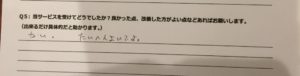 Q5：当サービスを受けてどうでしたか？良かった点、改善した方がよい点などあればお願いします。
（出来るだけ具体的だと助かります。）
たいへん良いです。